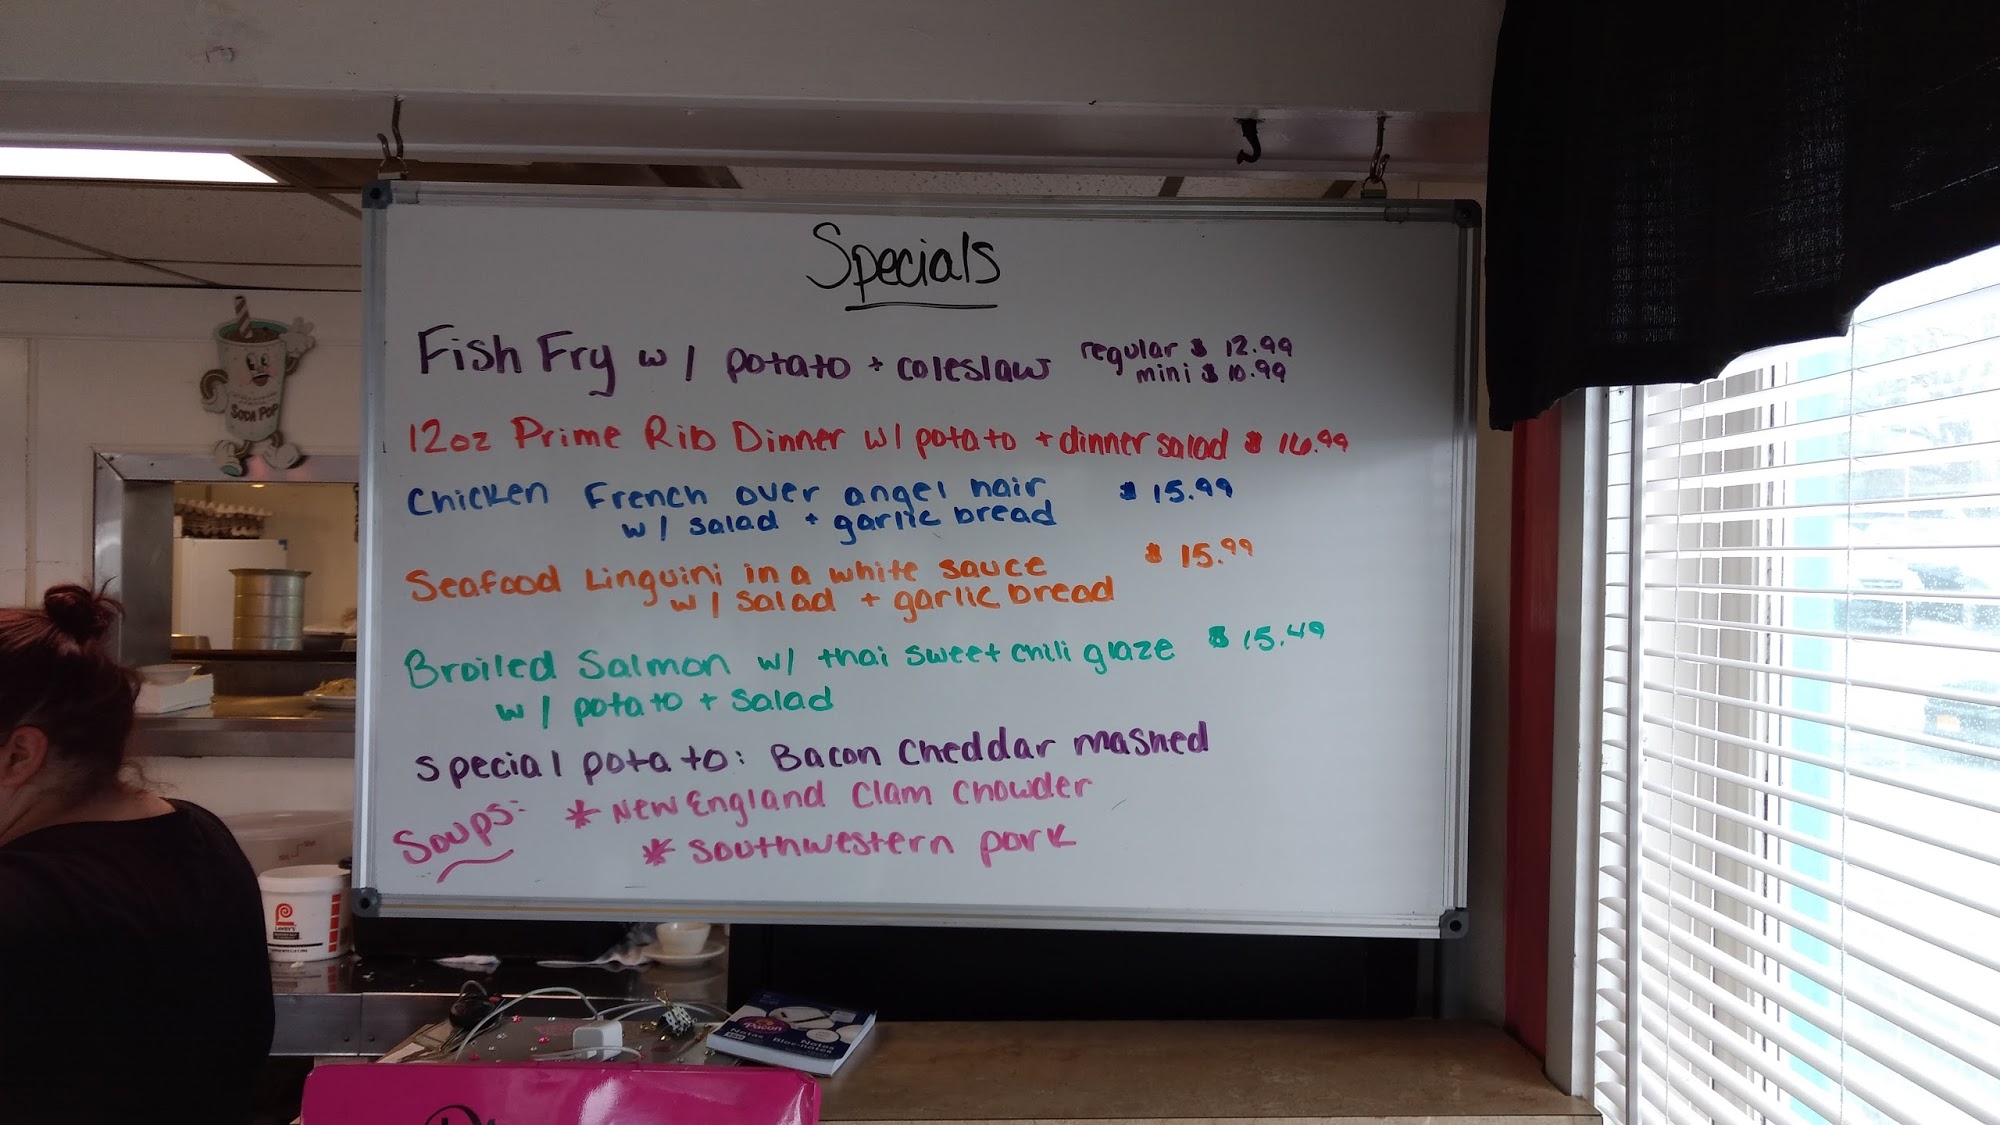 Specials
Fish Fry w/ potato + coleslaw regular $ 12.99
mini $ 10.99
12oz Prime Rib Dinner w/ potato + dinner salad $ 16.99
Chicken French over angel hair $ 15.99
w/ salad + garlic bread
Seafood Linguini in a white sauce $ 15.99
w/ salad + garlic bread
Broiled Salmon w/ thai sweet chili glaze $ 15.49
w/ potato + salad
special potato: Bacon Cheddar mashed
Soups: * New England Clam Chowder
* Southwestern pork
SODA POP
LAWRY'S
Pacon
Notes
Notas
Bloc-notes